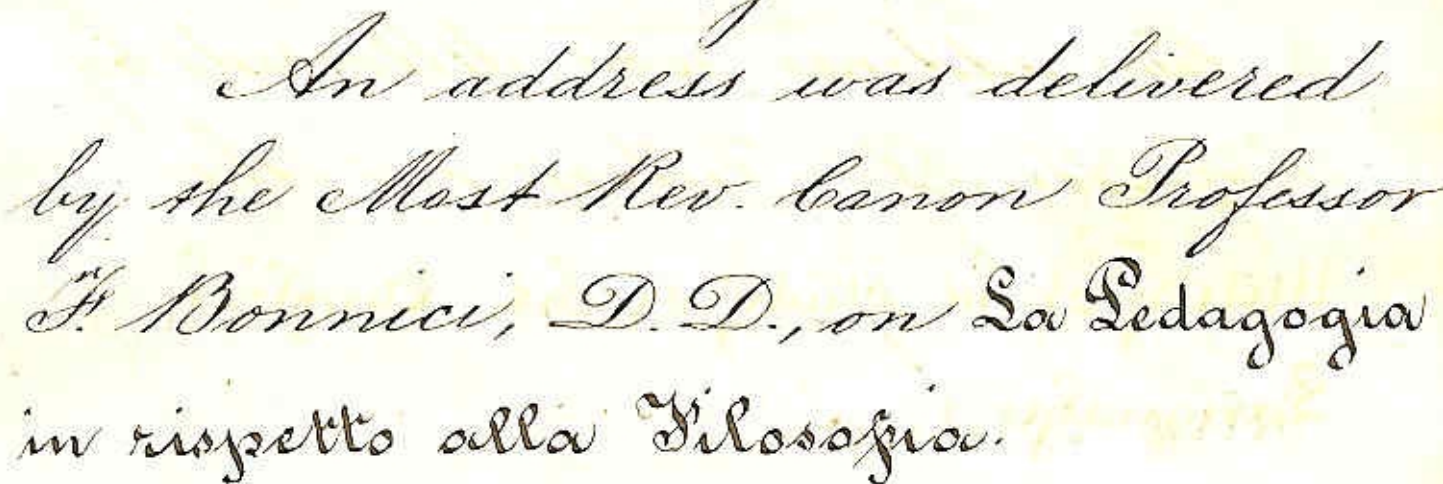 An address was delivered
by the Most Rev. Canon Professor
F. Bonnici, D. D., on La Pedagogia
in rispetto alla Filosofia.